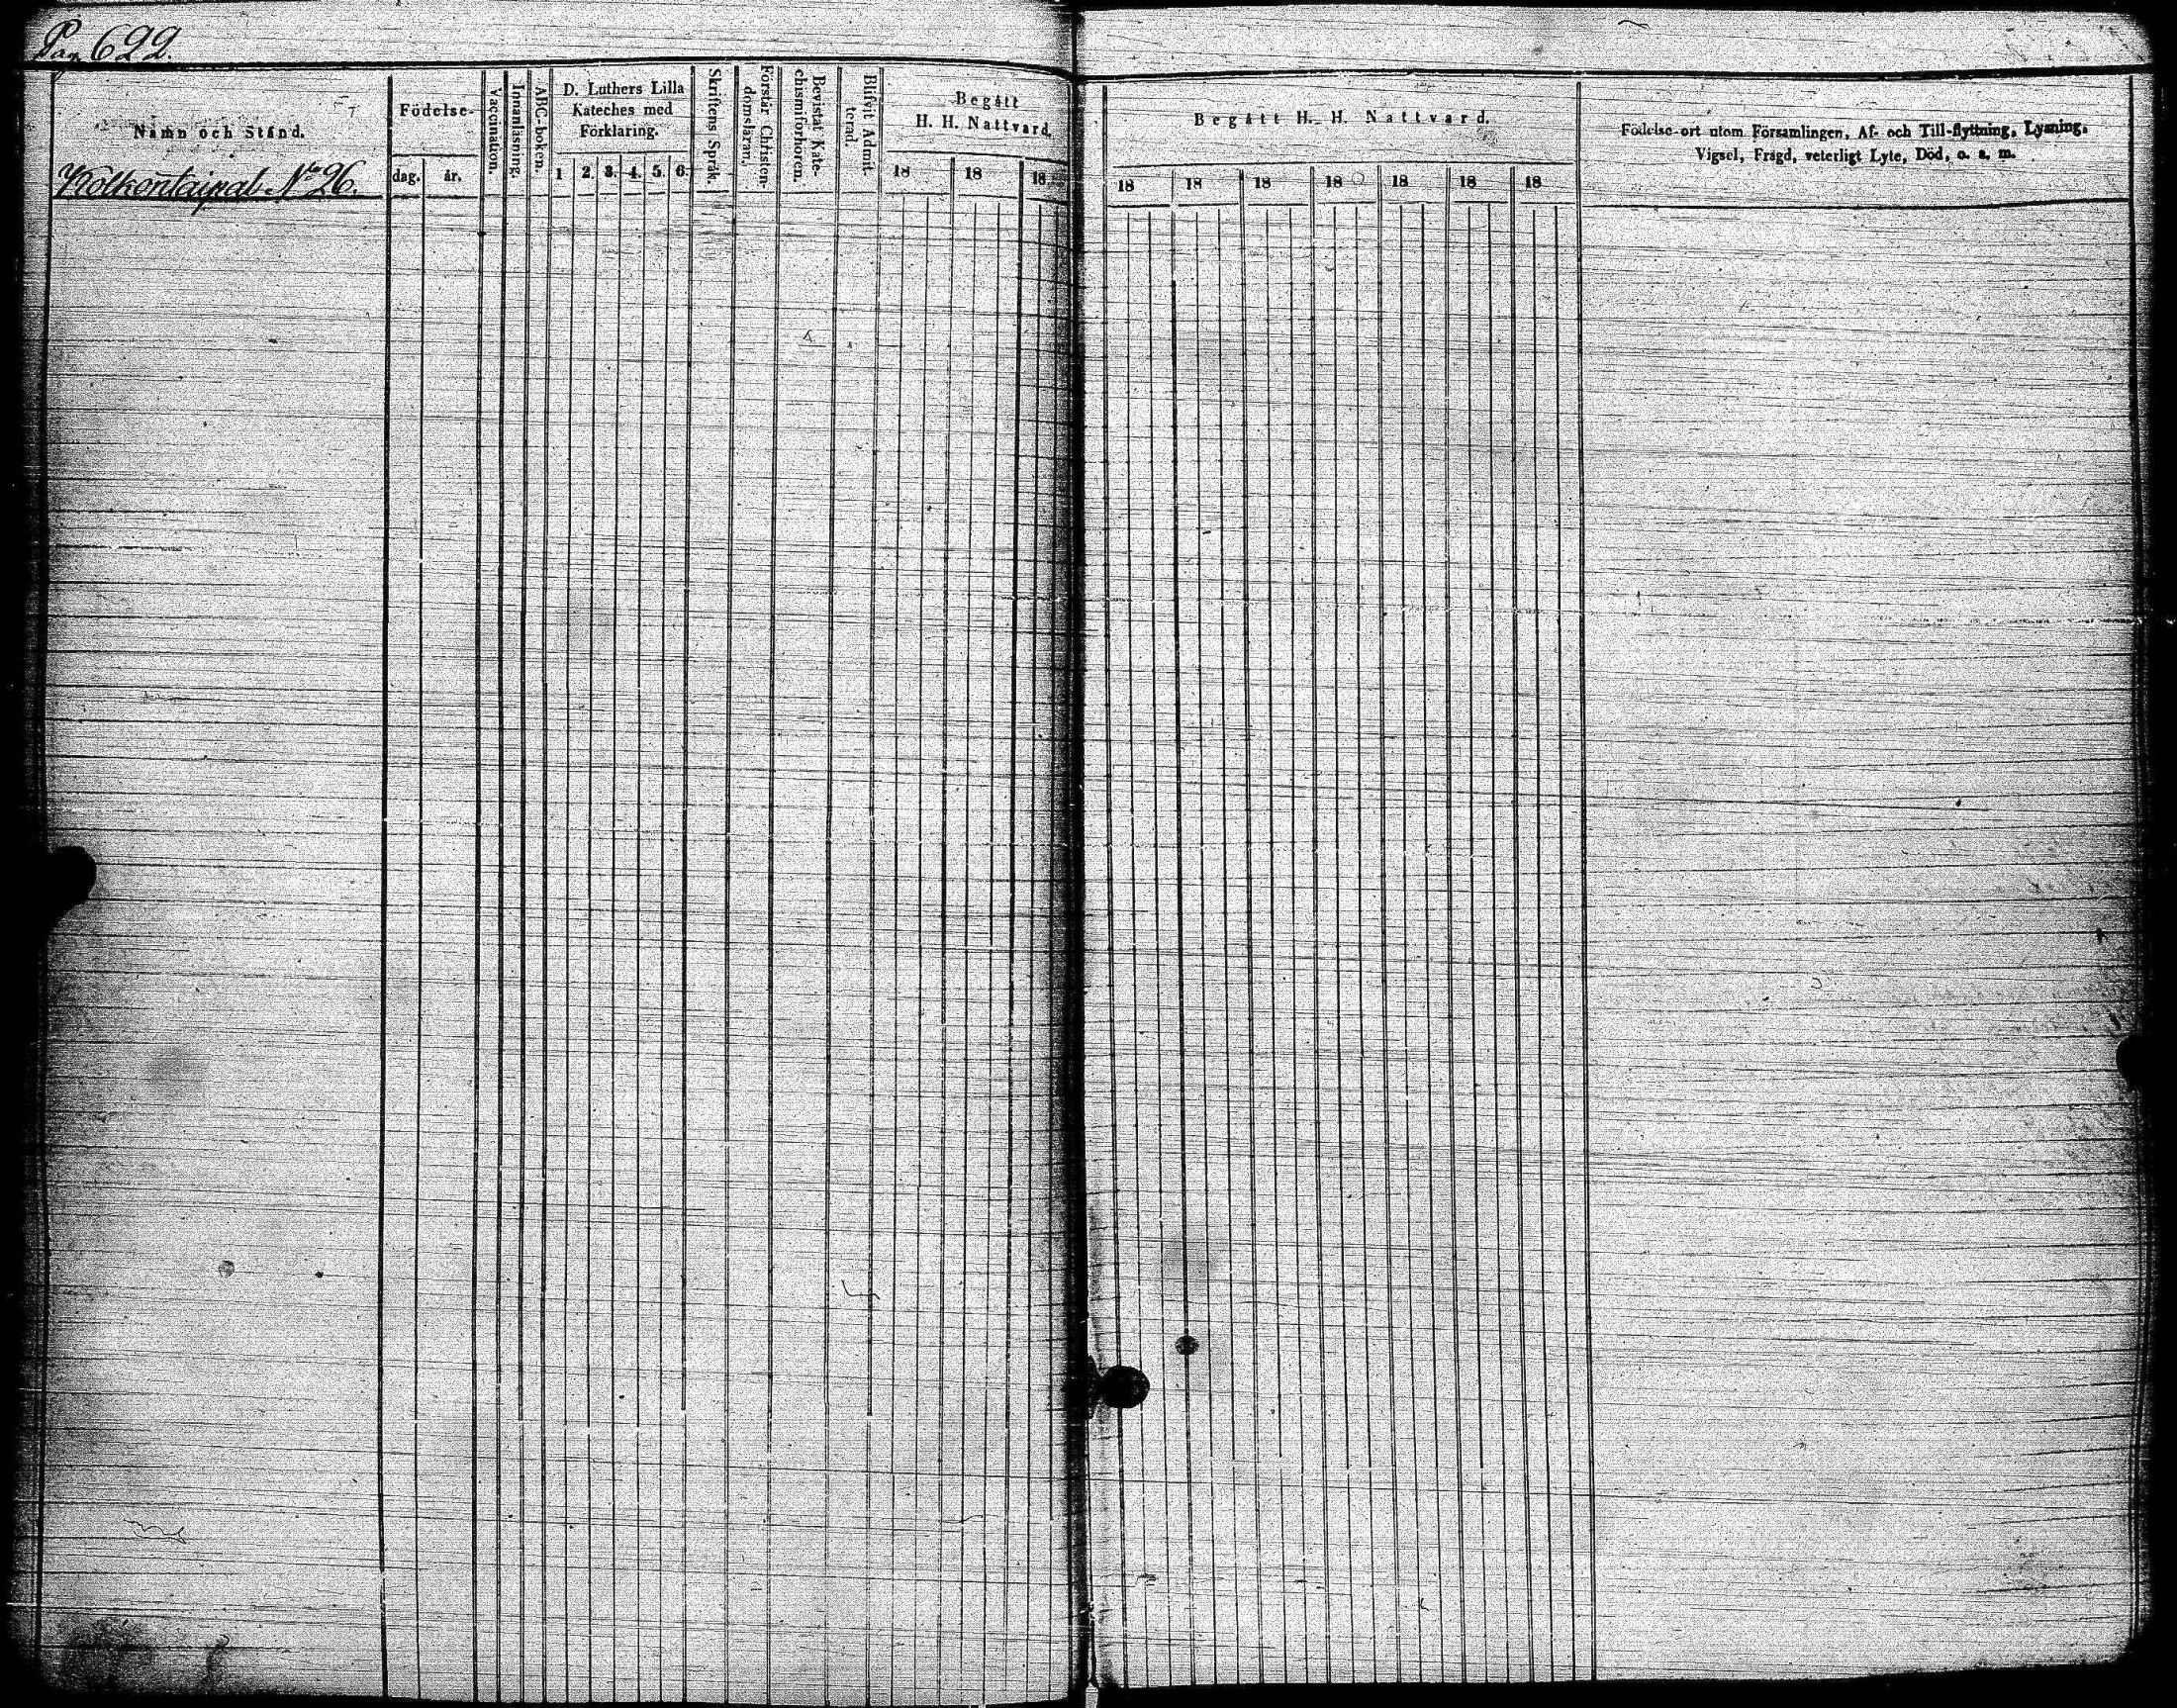 Pag 622.
Namn och Stånd.
Födelse-
dag.
år.
Vaccination.
Innanläsning.
ABC-boken.
D. Luthers Lilla
Kateches med
Förklaring.
1 2. 3. 4. 5. 6.
Skriftens Språk.
Förstår Christen-
domsläran.
Bevistat Kate-
chismiförhören.
Blifvit Admit-
terad.
Begått
H. H. Nattvard.
18 18 18
Begått H. H. Nattvard.
18 18 18 18 18 18 18
Födelse-ort utom Församlingen, Af- och Till-flyttning, Lysning,
Vigsel, Frägd, veterligt Lyte, Död, o. s. m.
Kolkontaipal No 26.